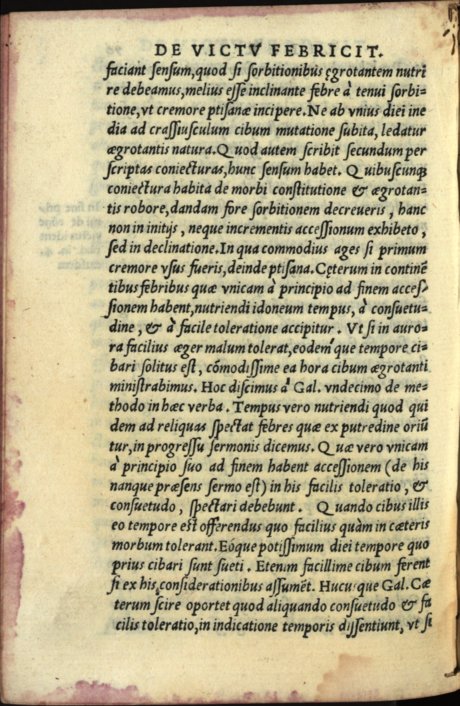 DE VICTV FEBRICIT.
faciant ſenſum, quod ſi ſorbitionibus ęgrotantem nutri
re debeamus, melius eſſe inclinante febre à tenui ſorbi=
tione, vt cremore ptiſanæ incipere. Ne ab vnius diei ine
dia ad craſſiuſculum cibum mutatione ſubita, lędatur
ægrotantis natura. Quod autem ſcribit ſecundum per
ſcriptas coniecturas, hunc ſenſum habet. Quibuſcunqꝫ
coniectura habita de morbi conſtitutione & ægrotan=
tis robore, dandam fore ſorbitionem decreueris, hanc
non in initijs, neque incrementis acceſſionum exhibeto,
ſed in declinatione. In qua commodius ages ſi primum
cremore vſus fueris, deinde ptiſana. Cęterum in continē
tibus febribus quæ vnicam à principio ad finem acceſ=
ſionem habent, nutriendi idoneum tempus, à conſuetu=
dine, & à facile toleratione accipitur. Vt ſi in auro=
ra facilius æger malum tolerat, eodem que tempore ci=
bari ſolitus eſt, cōmodiſſime ea hora cibum ægrotanti
miniſtrabimus. Hoc diſcimus à Gal. vndecimo de me=
thodo in hæc verba. Tempus vero nutriendi quod qui
dem ad reliquas ſpectat febres quæ ex putredine oriū
tur, in progreſſu ſermonis dicemus. Quæ vero vnicam
à principio ſuo ad finem habent acceſſionem (de his
nanque præſens ſermo eſt) in his facilis toleratio, &
conſuetudo, ſpectari debebunt. Quando cibus illis
eo tempore eſt offerendus quo facilius quàm in cæteris
morbum tolerant. Eóque potiſſimum diei tempore quo
prius cibari ſunt ſueti. Etenim facillime cibum ferent
ſi ex his conſiderationibus aſſumēt. Hucuſque Gal. Cæ
terum ſcire oportet quod aliquando conſuetudo & fa
cilis toleratio, in indicatione temporis diſſentiunt, vt ſi